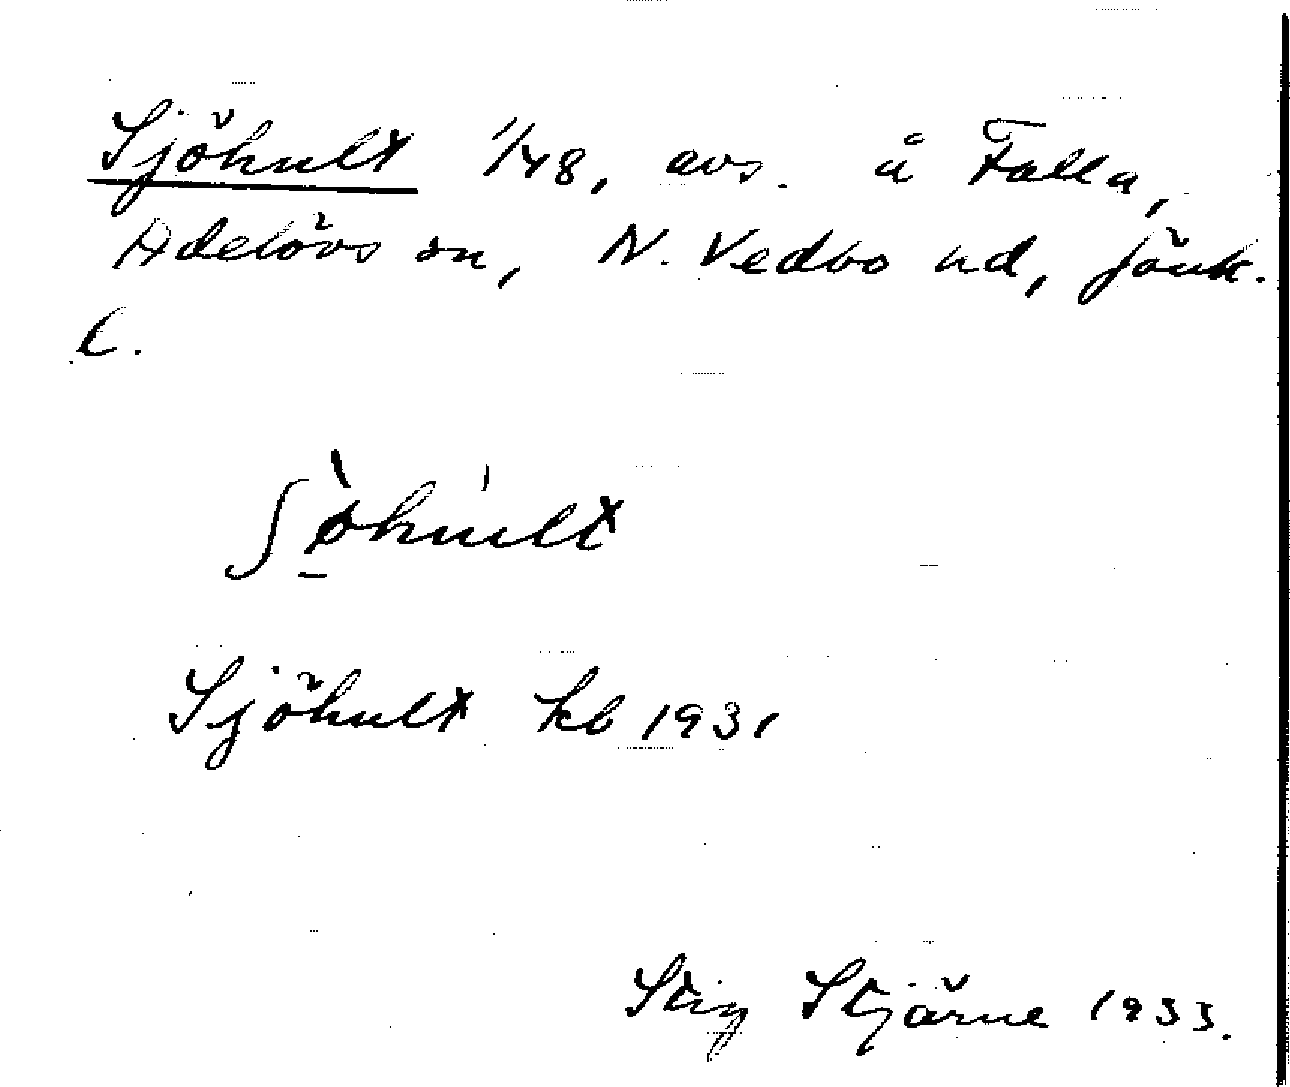 Sjöhult 1/48, avs. å Falla,
Adelövs sn, N. Vedbo hd, Jönk.
l.
ʃö̀hu̍lt
Sjöhult kb 1931
Stig Stjärne 1933.